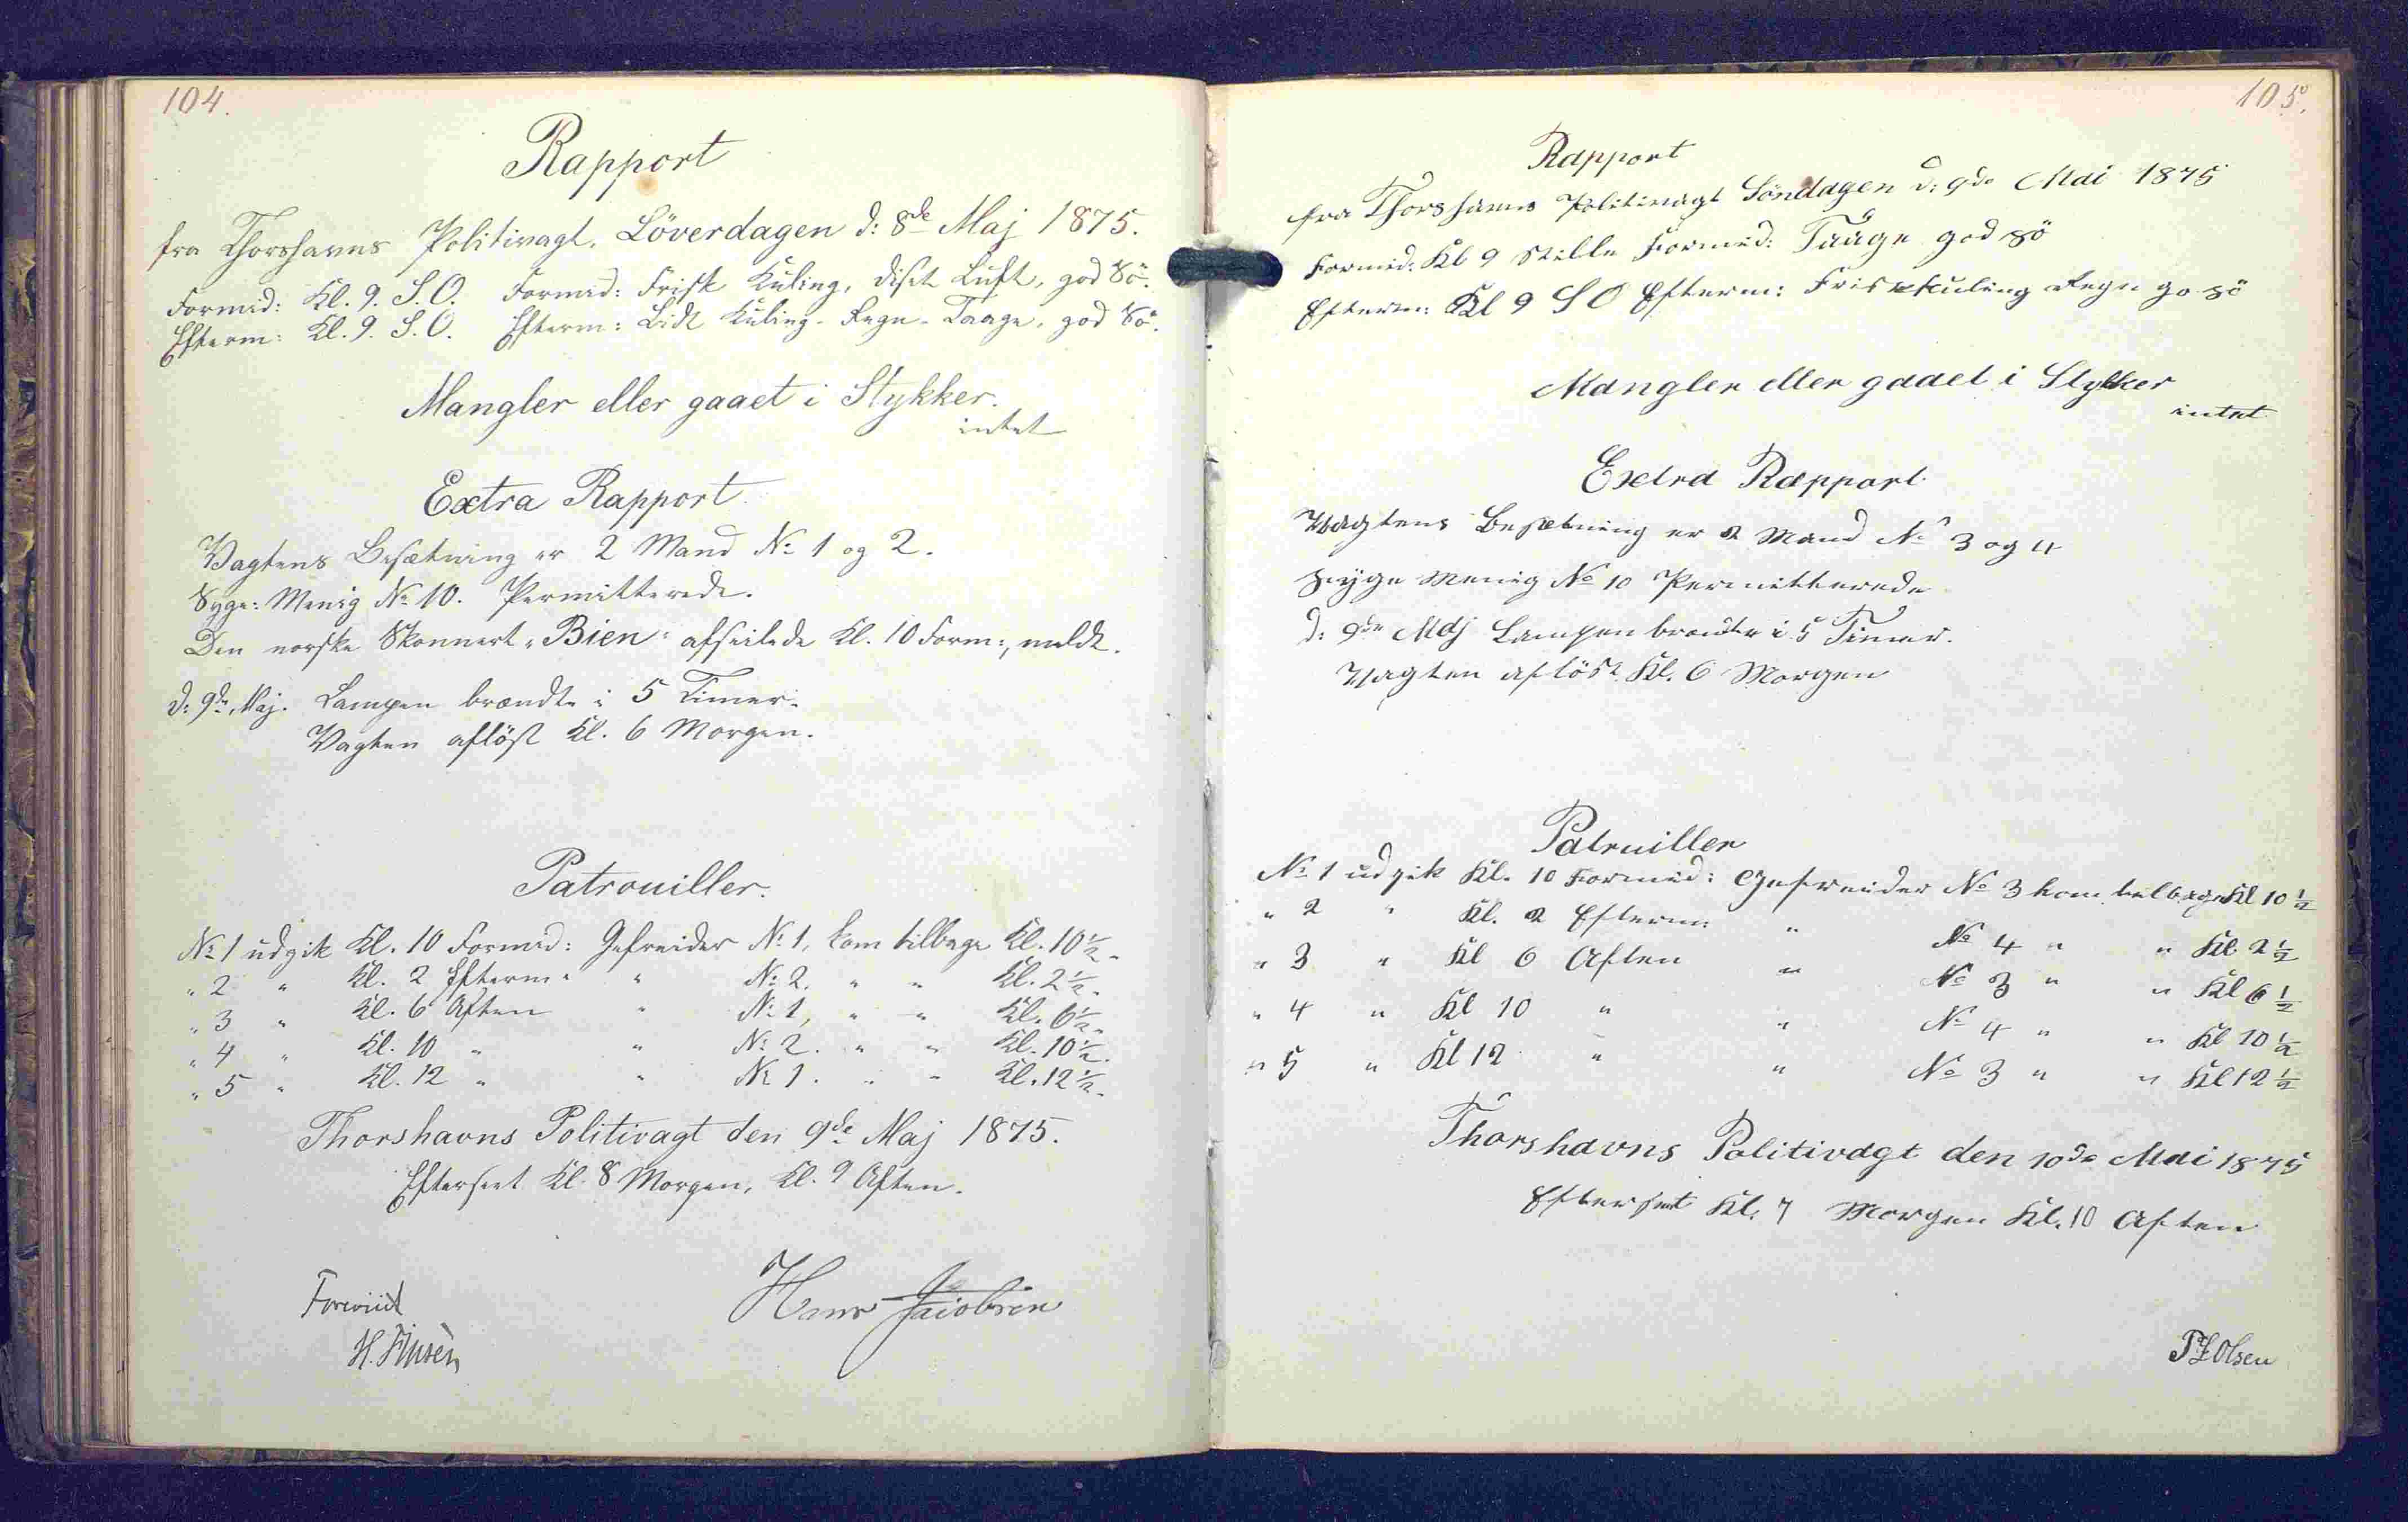 104.
Rapport
fra Thorshavns Politivagt. Löverdagen d: 8de Maj 1875.
Formid: Kl. 9. S.O. Formid: Frisk Kuling, diset Luft, god Sö.
Efterm: Kl. 9. S.O. Efterm: Lidt Kuling - Regn - Taage, god Sö.
Mangler eller gaaet i Stykker.
intet
Extra Rapport.
Vagtens Besætning er 2 Mand No 1 og 2.
Syge: Menig No 10. Permitterede.
Den norske Skonnert "Bien" afseilede Kl. 10 Form:, meldt.
d: 9de Maj. Lampen brændte i 5 Timer.
Vagten aflöst Kl. 6 Morgen.
Patrouiller.
No 1 udgik Kl. 10 Formd: Gefreider No 1, kom tilbage Kl. 10½.
" 2 " Kl. 2 Efterm: " No 2. " " Kl. 2½.
" 3 " Kl. 6 Aften " No 1, " " Kl. 6½.
" 4 " Kl. 10 " " No 2. " " Kl. 10½.
" 5 " Kl. 12 " " No 1. " " Kl. 12½.
Thorshavns Politivagt den 9de Maj 1875.
Efterseet Kl. 8 Morgen, Kl. 9 Aften.
Foreviist
H. Finsen
Hans Jacobsen
105.
Rapport
fra Thorshavns Politivagt Söndagen d: 9de Mai 1875
Formid: Kl 9 Stille Formid: Taage god sö
Efterm: Kl 9 S O Efterm: Frisk Kuling Regn go sö
Mangler eller gaaet i Stykker
intet
Extra Rapport.
Vagtens Besætning er 2 Mand No 3 og 4
Syge Menig No 10 Permitterede
d: 9de Maj Lampen brændte i 5 Timer.
Vagten aflöst Kl. 6 Morgen
Patruiller
No 1 udgik Kl. 10 Formid: Gefreider No 3 kom tilbage Kl 10½
" 2 " Kl. 2 Efterm: " No 4 " " Kl. 2½
" 3 " Kl 6 Aften " No 3 " " Kl 6½
" 4 " Kl 10 " " No 4 " " Kl 10½
" 5 " Kl 12 " " No 3 " " Kl 12½
Thorshavns Politivagt den 10de Mai 1875
Efterset Kl. 7 Morgen Kl. 10 Aften
Olsen